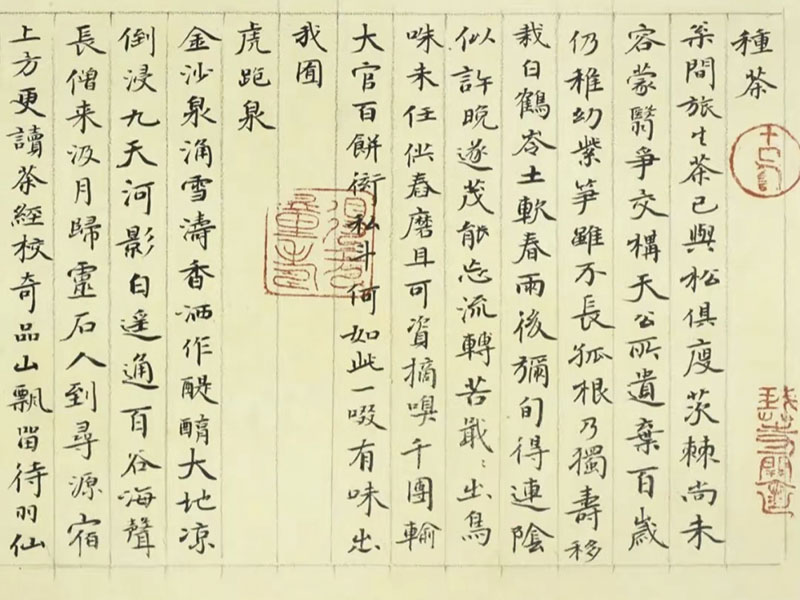 種茶
枀間旅生茶已與松俱瘦茨棘尚未
容蒙翳爭交構天公所遺棄百歲
仍稚幼紫筍雖不長孤根乃獨壽移
栽白鶴岺土軟春雨後彌旬得連陰
似許晚遂茂能忘流轉苦戢〻出鳥
咮未任供舂磨且可資摘嗅千團輸
大官百餅衒私斗何如此一啜有味出
我囿
虎跑泉
金沙泉涌雪濤香洒作醍醐大地凉
倒浸九天河影白遙通百谷海聲
長僧来汲月歸靈石人到尋源宿
上方更讀茶經校奇品山瓢留待羽仙